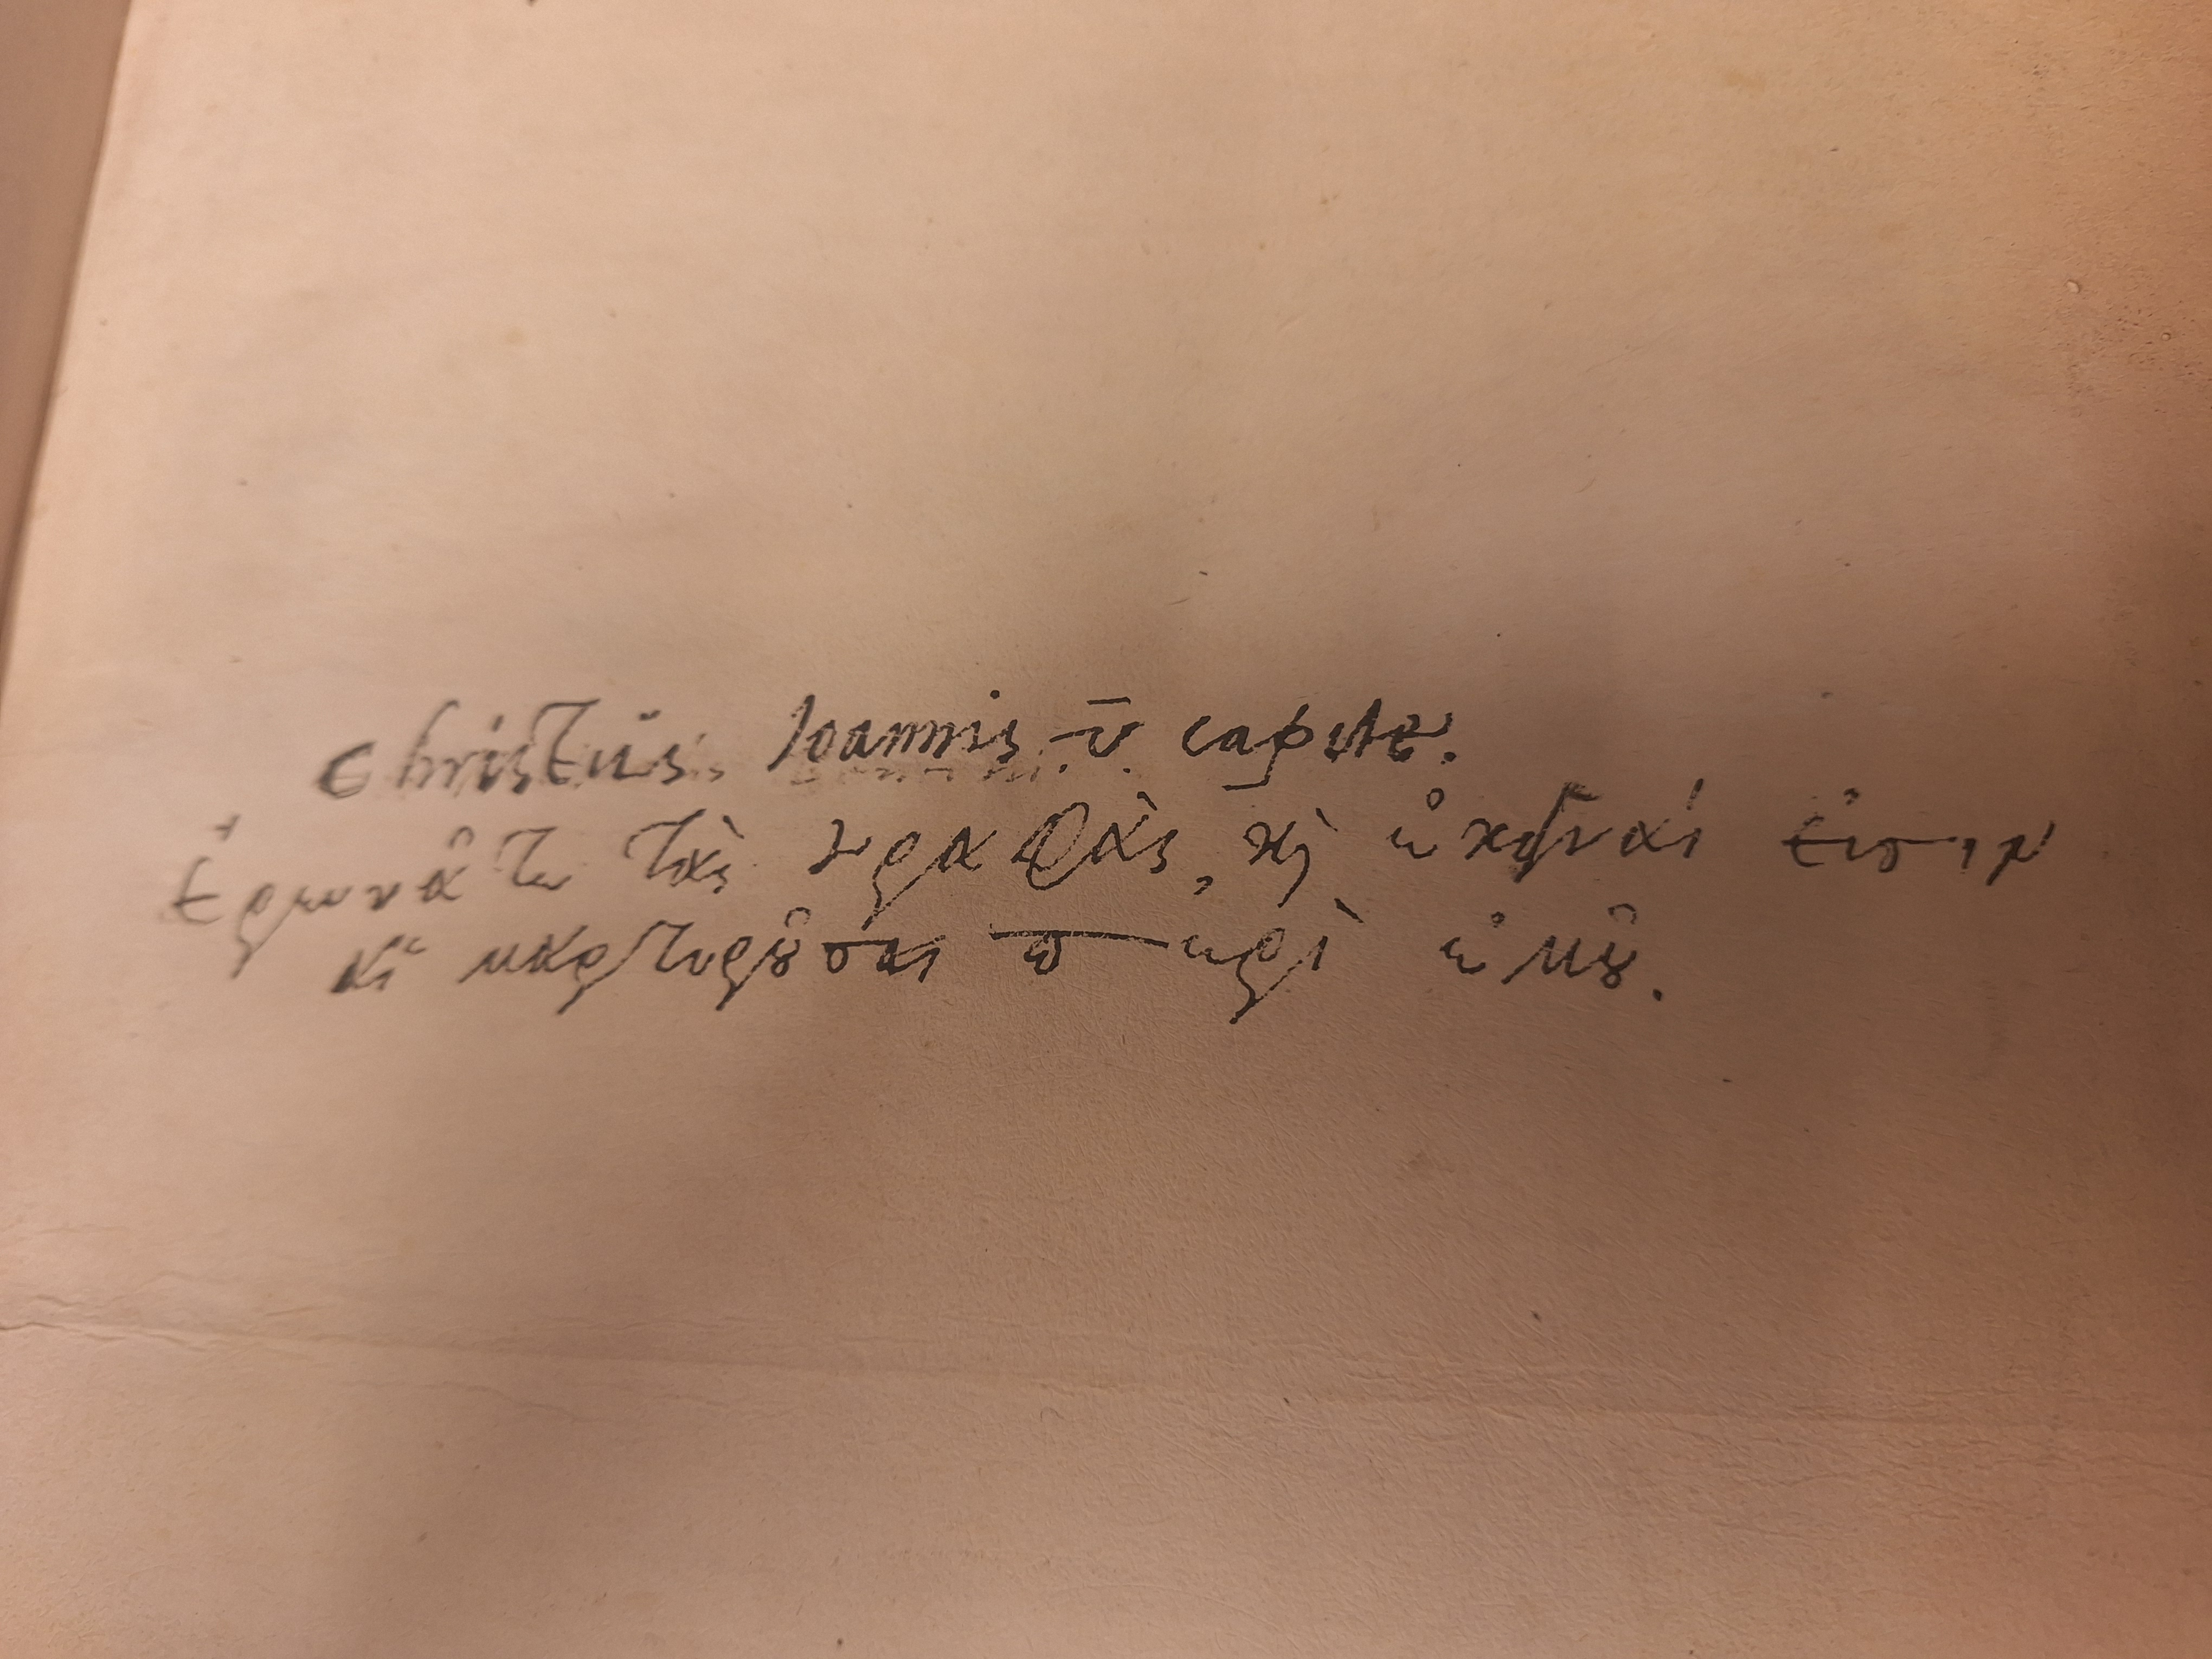 Christus. Ioannis. v̄. capite.
Ἐρευνᾶτε τὰς γραφὰς, καὶ ἐκεῖναί εἰσιν
αἱ μαρτυροῦσαι περὶ ἐμοῦ.